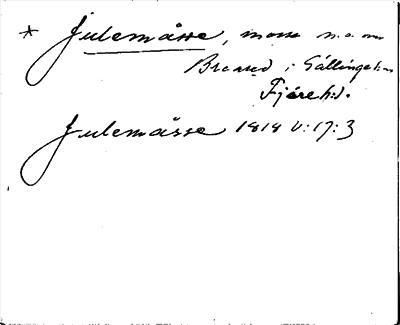 * Julemåsse, mosse n.o. om
Brearød i Gällinge sn
Fjäre hd.
Julemåsse 1818 V: 17: 3